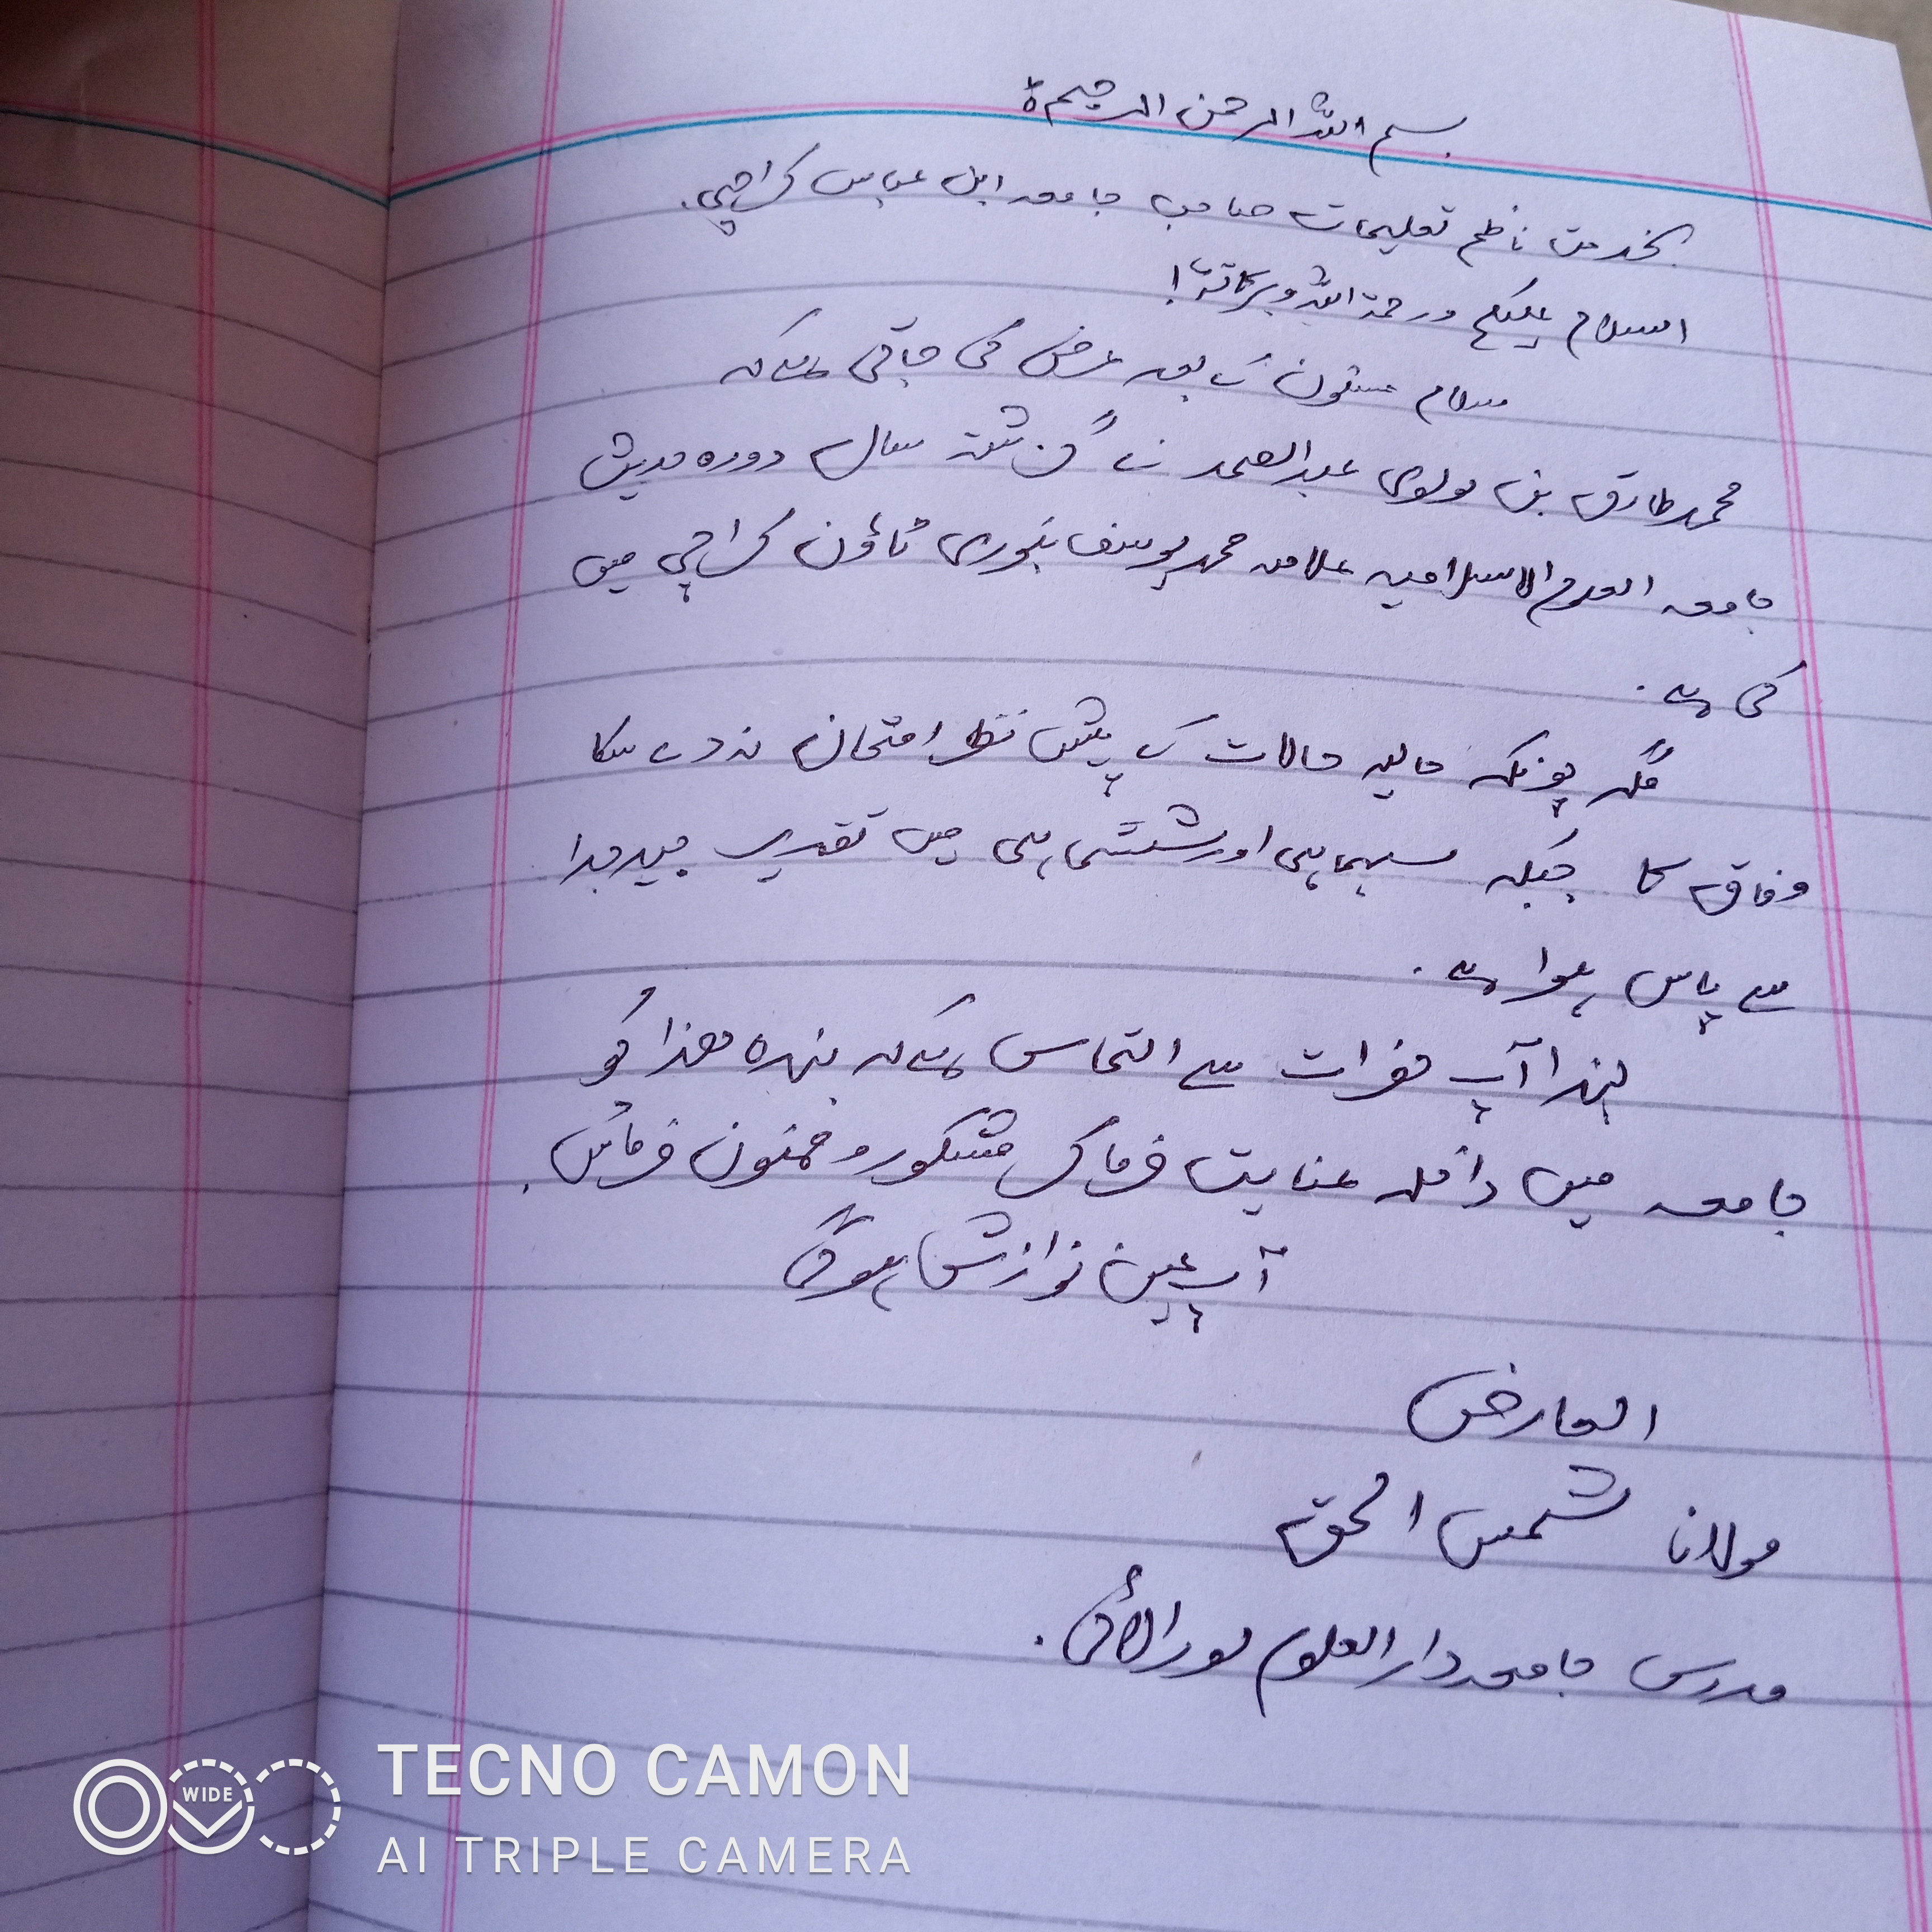 بسم اللہ الرحمن الرحیم
بخدمت ناظم تعلیمات صاحب جامعہ ابن عباس کراچی۔
السلام علیکم ورحمۃ اللہ وبرکاتہ!
سلام مسنون کے بعد عرض کی جاتی ہے کہ
محمد طارق بن مولوی عبدالصمد نے گزشتہ سال دورہ حدیث
جامعہ العلوم الاسلامیہ علامہ محمد یوسف بنوری ٹاؤن کراچی میں
کی ہے۔
مگر چونکہ حالیہ حالات کے پیش نظر امتحان نہ دے سکا
وفاق کا جبکہ سہماہی اور ششماہی میں تقدیر جید جدا
سے پاس ہوا ہے۔
لہذا آپ حضرات سے التماس ہے کہ بندہ ھذا کو
جامعہ میں داخلہ عنایت فرما کر مشکور و ممنون فرمائیں۔
آپ عین نوازش ہوگی
العارض
مولانا شمس الحق
مدرس جامعہ دارالعلوم
TECNO CAMON
WIDE
AI TRIPLE CAMERA